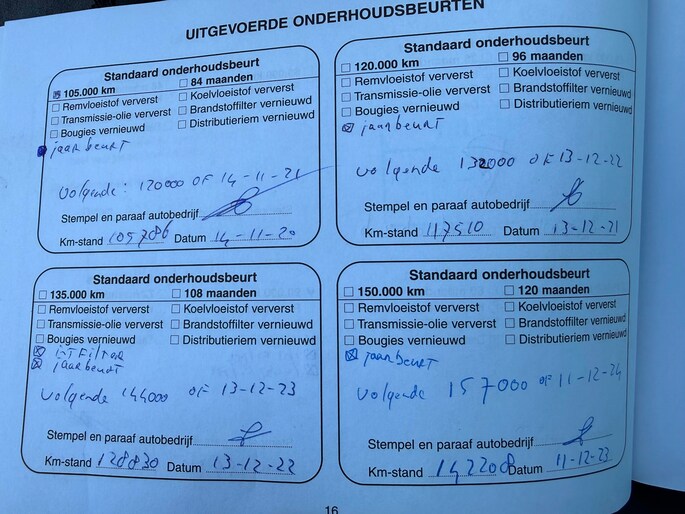 UITGEVOERDE ONDERHOUDSBEURTEN
Standaard onderhoudsbeurt
105.000 km 84 maanden
Remvloeistof ververst Koelvloeistof ververst
Transmissie-olie ververst Brandstoffilter vernieuwd
Bougies vernieuwd Distributieriem vernieuwd
jaarbeurt
volgende: 120000 OF 14-11-21
Stempel en paraaf autobedrijf
Km-stand 105786 Datum 14-11-20
Standaard onderhoudsbeurt
120.000 km 96 maanden
Remvloeistof ververst Koelvloeistof ververst
Transmissie-olie ververst Brandstoffilter vernieuwd
Bougies vernieuwd Distributieriem vernieuwd
jaarbeurt
volgende 132000 OF 13-12-22
Stempel en paraaf autobedrijf
Km-stand 117510 Datum 13-12-21
Standaard onderhoudsbeurt
135.000 km 108 maanden
Remvloeistof ververst Koelvloeistof ververst
Transmissie-olie ververst Brandstoffilter vernieuwd
Bougies vernieuwd Distributieriem vernieuwd
jaarbeurt
volgende 144000 OF 13-12-23
Stempel en paraaf autobedrijf
Km-stand 128830 Datum 13-12-22
Standaard onderhoudsbeurt
150.000 km 120 maanden
Remvloeistof ververst Koelvloeistof ververst
Transmissie-olie ververst Brandstoffilter vernieuwd
Bougies vernieuwd Distributieriem vernieuwd
jaarbeurt
volgende 157000 OF 11-12-24
Stempel en paraaf autobedrijf
Km-stand 142208 Datum 11-12-23
16